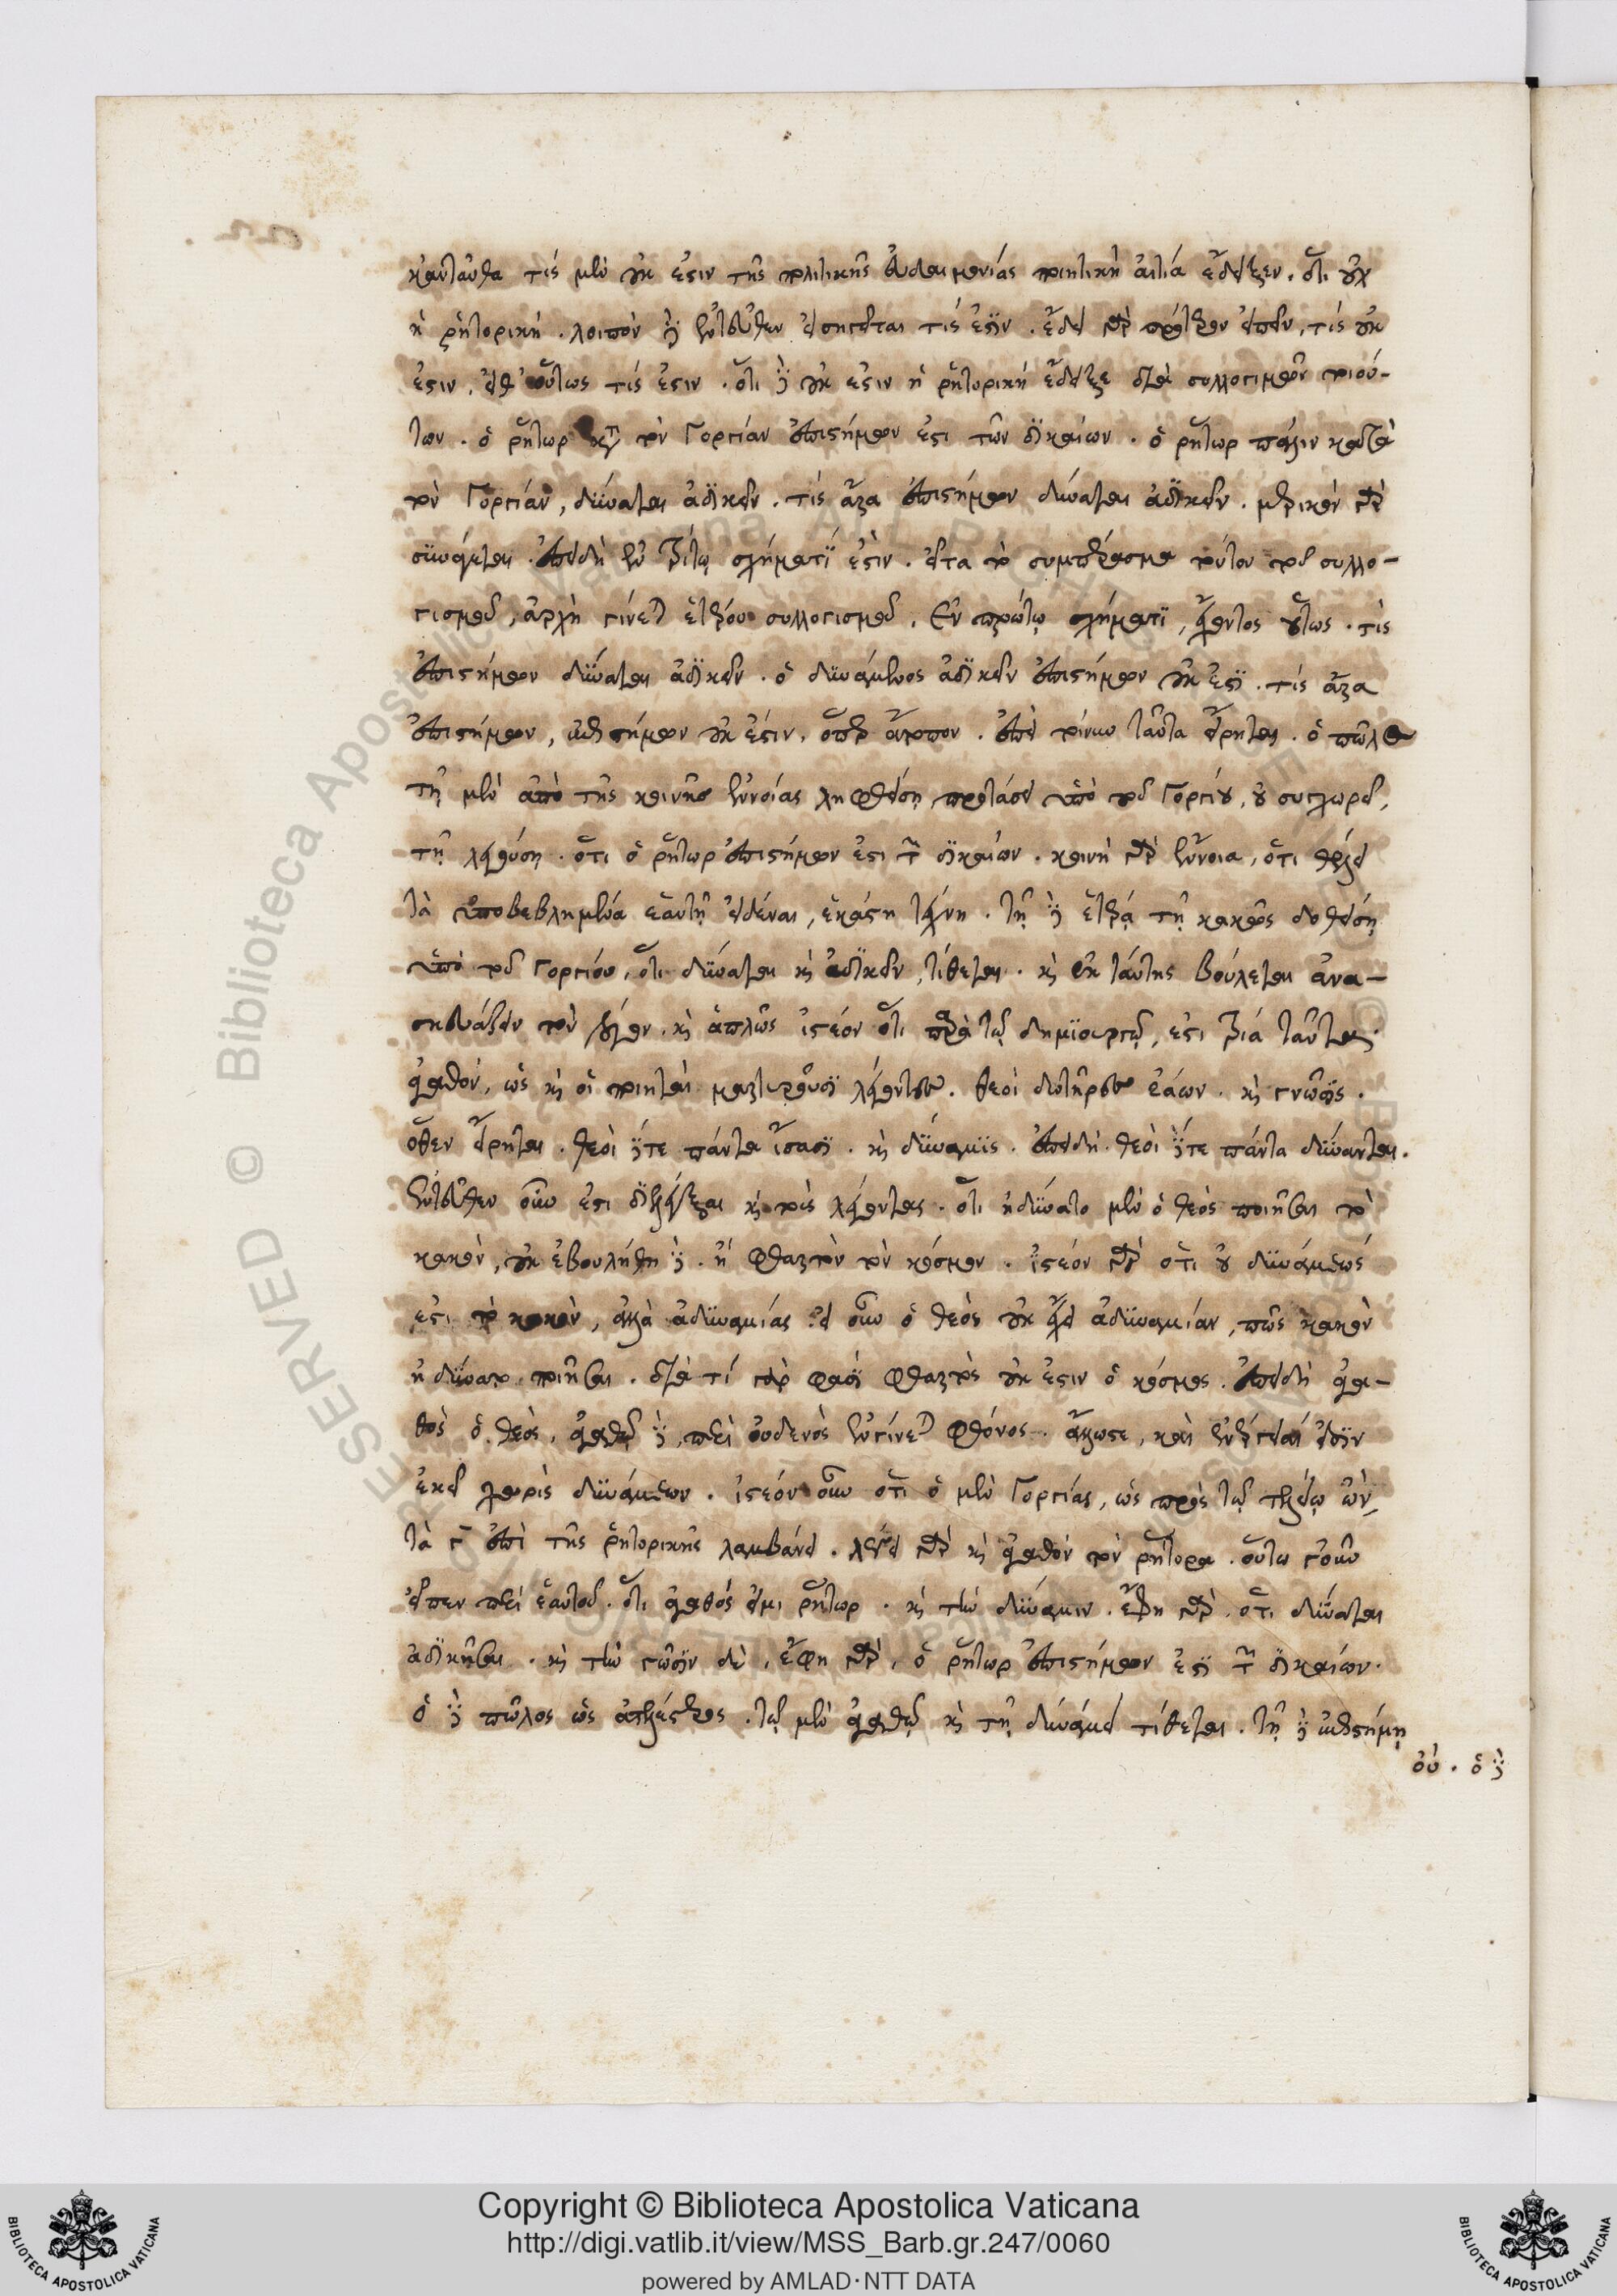 κἀνταῦθα τίς μὲν οὐκ ἔστιν τῆς πολιτικῆς εὐδαιμονίας ποιητικὴ αἰτία ἔδειξεν. ὅτι οὐχ
ἡ ῥητορική. λοιπὸν δὲ ἐντεῦθεν εἰσηγεῖται τίς ἐστιν. ἔδει γὰρ πρότερον εἰπεῖν, τίς οὐκ
ἔστιν, εἶθ' οὕτως τίς ἐστιν. ὅτι δὲ οὐκ ἔστιν ἡ ῥητορικὴ ἔδειξε διὰ συλλογισμῶν τοιού-
των. ὁ ῥήτωρ κατὰ τὸν Γοργίαν ἐπιστήμων ἐστὶ τῶν δικαίων. ὁ ῥήτωρ πάλιν κατὰ
τὸν Γοργίαν, δύναται ἀδικεῖν. τίς ἄρα ἐπιστήμων δύναται ἀδικεῖν. μερικὸν γὰρ
συνάγεται. ἐπειδὴ ἐν τρίτῳ σχήματί ἐστιν. εἶτα τὸ συμπέρασμα τούτου τοῦ συλλο-
γισμοῦ, ἀρχὴ γίνεται ἑτέρου συλλογισμοῦ. ἐν πρώτῳ σχήματι, ἔχοντος οὕτως. τίς
ἐπιστήμων δύναται ἀδικεῖν. ὁ δυνάμενος ἀδικεῖν ἐπιστήμων οὐκ ἔστι. τίς ἄρα
ἐπιστήμων, ἐπιστήμων οὐκ ἔστιν, ὅπερ ἄτοπον. ἐπεὶ τοίνυν ταῦτα εἴρηται. ὁ πῶλος
τῇ μὲν ἀπὸ τῆς κοινῆς ἐννοίας ληφθείσῃ προτάσει ὑπὸ τοῦ Γοργίου, οὐ συγχωρεῖ,
τῇ λεγούσῃ. ὅτι ὁ ῥήτωρ ἐπιστήμων ἐστὶ τῶν δικαίων. κοινὴ γὰρ ἔννοια, ὅτι θέλει
τὰ ὑποβεβλημένα ἑαυτῇ εἰδέναι, ἑκάστη τέχνη. τῇ δὲ ἑτέρᾳ τῇ κακῶς δοθείσῃ
ὑπὸ τοῦ Γοργίου, ὅτι δύναται καὶ ἀδικεῖν, τίθεται. καὶ ἐκ ταύτης βούλεται ἀνα-
σκευάζειν τὸν λόγον. καὶ ἁπλῶς ἰστέον ὅτι παρὰ τῷ δημιουργῷ, ἐστὶ τρία ταῦτα.
ἀγαθόν, ὡς καὶ οἱ ποιηταὶ μαρτυροῦσι λέγοντες. θεοὶ δωτῆρες ἐάων. καὶ γνῶσις.
ὅθεν εἴρηται. θεοὶ δέ τε πάντα ἴσασι. καὶ δύναμις. ἐπειδὴ. θεοὶ δέ τε πάντα δύνανται.
ἐντεῦθεν οὖν ἔστι διελέγξαι καὶ τοὺς λέγοντας. ὅτι ἠδύνατο μὲν ὁ θεὸς ποιῆσαι τὸ
κακὸν, οὐκ ἐβουλήθη δέ. ἢ φθαρτὸν τὸν κόσμον. ἰστέον γὰρ ὅτι οὐ δυνάμεώς
ἐστι τὸ κακὸν, ἀλλὰ ἀδυναμίας. εἰ οὖν ὁ θεὸς οὐκ ἔχει ἀδυναμίαν, πῶς κακὸν
ἠδύνατο ποιῆσαι. διὰ τί γάρ φασι φθαρτὸς οὐκ ἔστιν ὁ κόσμος. ἐπειδὴ ἀγα-
θὸς ὁ θεὸς, ἀγαθῷ δὲ, περὶ οὐδενὸς ἐγγίνεται φθόνος. ἄλλωστε, καὶ ἐνέργειαί εἰσιν
ἐκεῖ χωρὶς δυνάμεων. ἰστέον οὖν ὅτι ὁ μὲν Γοργίας, ὡς πρὸς τῷ τελείῳ ὢν,
τὰ γ ἐπὶ τῆς ῥητορικῆς λαμβάνει. λέγει γὰρ καὶ ἀγαθὸν τὸν ῥήτορα. οὕτω γοῦν
εἶπεν περὶ ἑαυτοῦ. ὅτι ἀγαθός εἰμι ῥήτωρ. καὶ τὴν δύναμιν. ἔφη γὰρ, ὅτι δύναται
ἀδικῆσαι. καὶ τὴν γνῶσιν δὲ, ἔφη γὰρ, ὁ ῥήτωρ ἐπιστήμων ἐστὶ τῶν δικαίων.
ὁ δὲ πῶλος ὡς ἀτελέστερος. τῷ μὲν ἀγαθῷ καὶ τῇ δυνάμει τίθεται. τῇ δὲ ἐπιστήμῃ
οὐ. ὁ δὲ